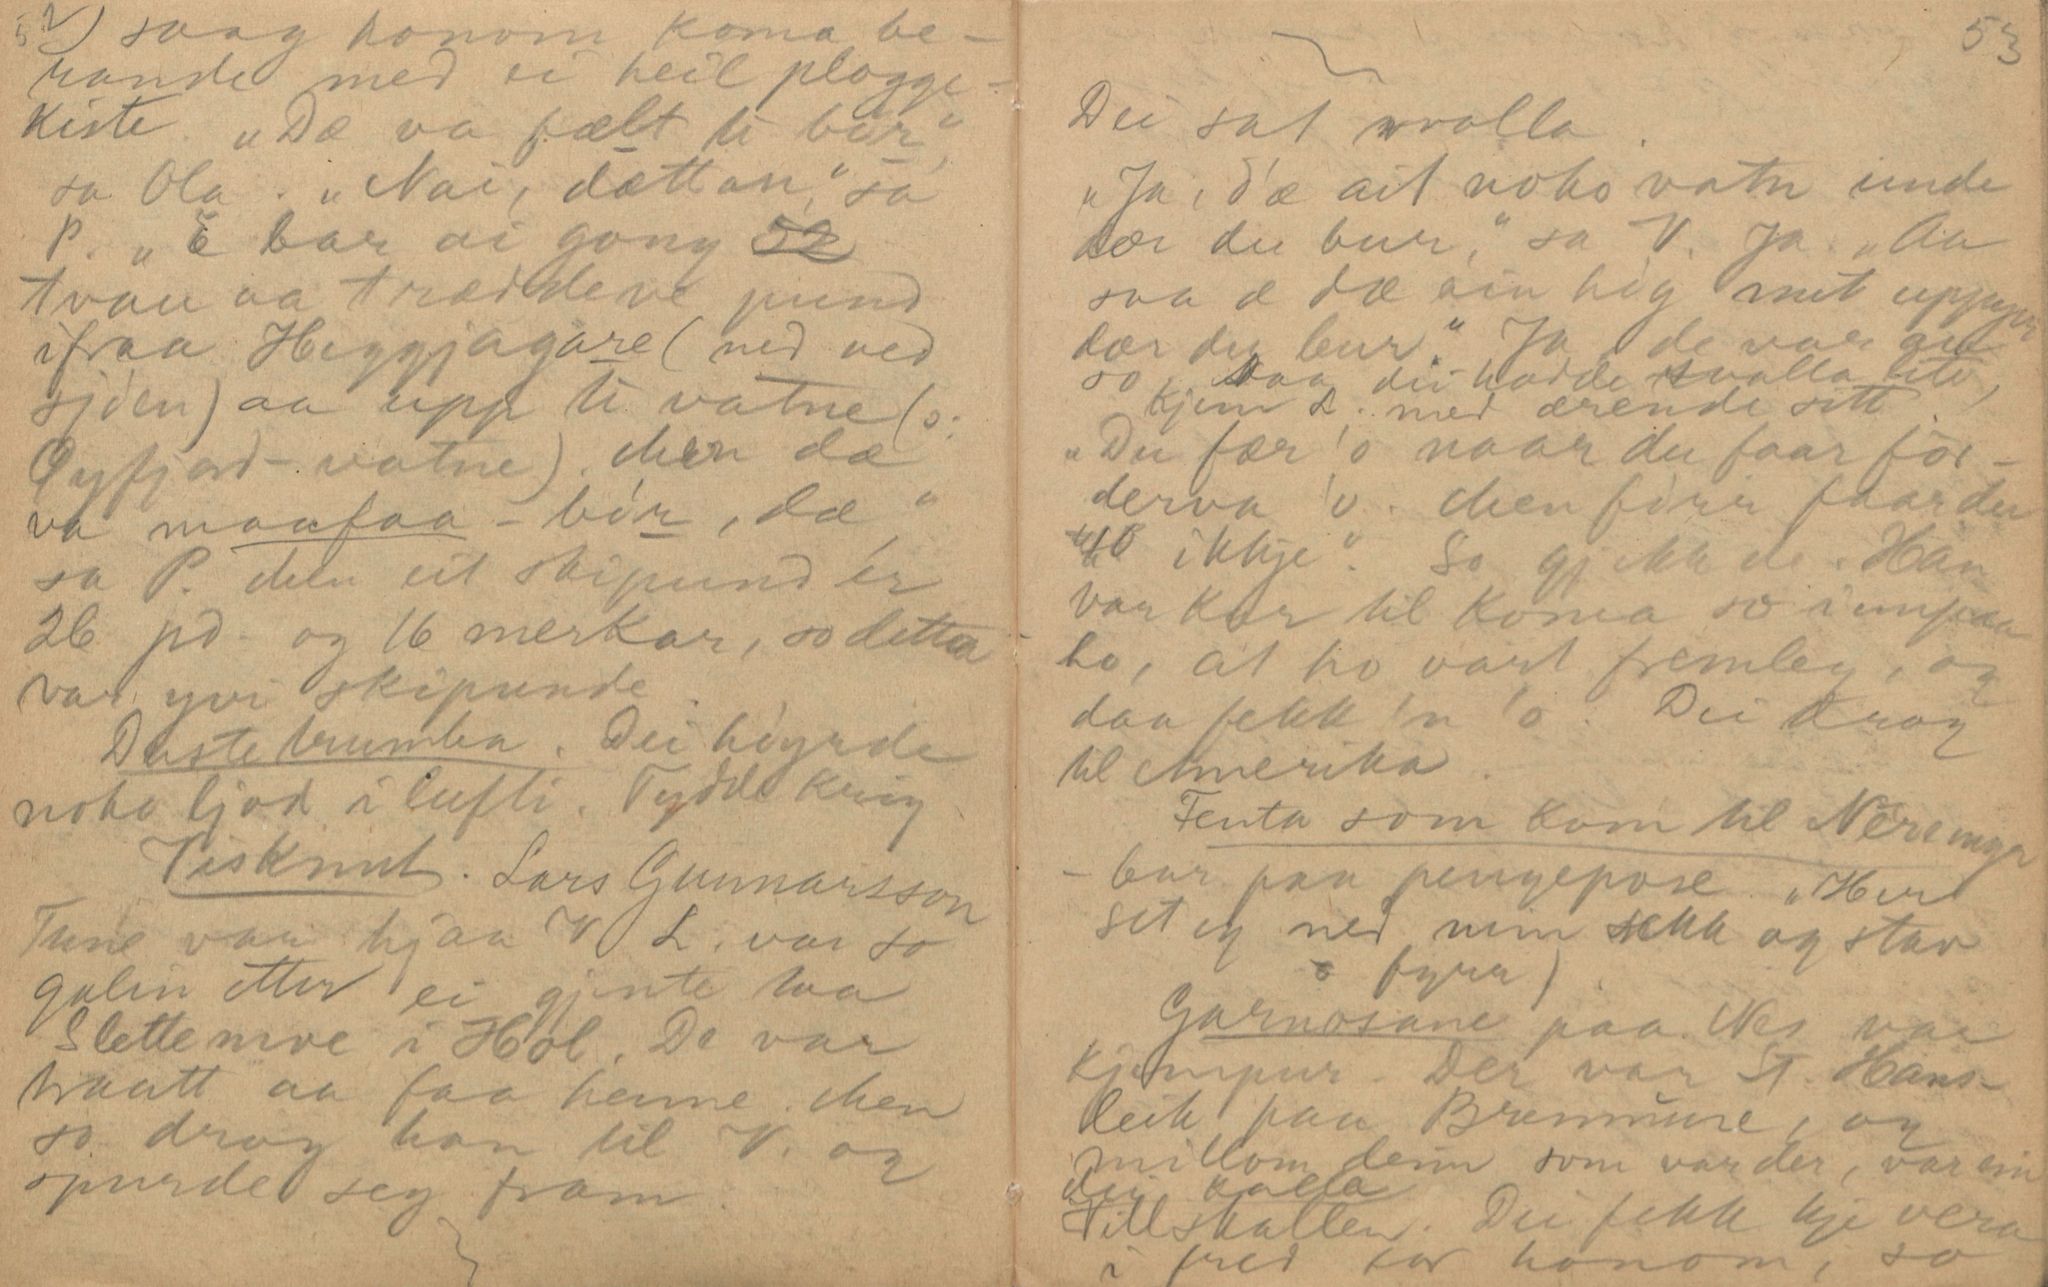 52) saag honom koma be-
rande med ei heil plogge-
kiste. „Dæ va fælt ti bör,"
sa Ola. „Nai, dættan," sa
P. „E bar ai gong 52
tvau aa træddeve pund
ifraa Heggjagare (ned ved
sjöen) aa upp ti vatne (o:
Öyfjord-vatne). Men dæ
va maafaa-bör, dæ,"
sa P. Men eit skipund er
26 pd og 16 merkar, so detta
var yvi skipunde.
Dustetrumba. Dei höyrde
noko ljod i lufti. Tydde krig
Visknut. Lars Gunnarsson
Tune var hjaa V. L. var so
galin etter ei gjente paa
Slettemoe i Hol. De var
traatt aa faa henne. Men
so drog han til V. og
spurde seg fram.
53
Dei sat svalla.
„Ja, d'æ ait noko vatn unde
dær du bur," sa V. Ja. „Aa
saa æ dæ ain hig mit uppyvi
dær du bur." Ja, de var au
so. Daa dei hadde svalla lite,
kjem L. med ærende sitt.
„Du fær 'o naar du faar för-
derva 'o. Men förr faar du
'o ikkje". So gjekk de. Han
var kar til koma so innpaa
ho, at ho vart fremleg, og
daa fekk 'n 'o. Dei drog
til Amerika.
Fenta som kom til Neremya
- bar paa pengepose. „Her
set eg ned min sekk og stav
o fyrr).
Garnosane paa Nes var
kjempur. Der var St. Hans-
leik paa Bremmune, og
millom deim som var der, var ein
dei kalla
Villskallen. Dei fekk kje vera
i fred for honom, so